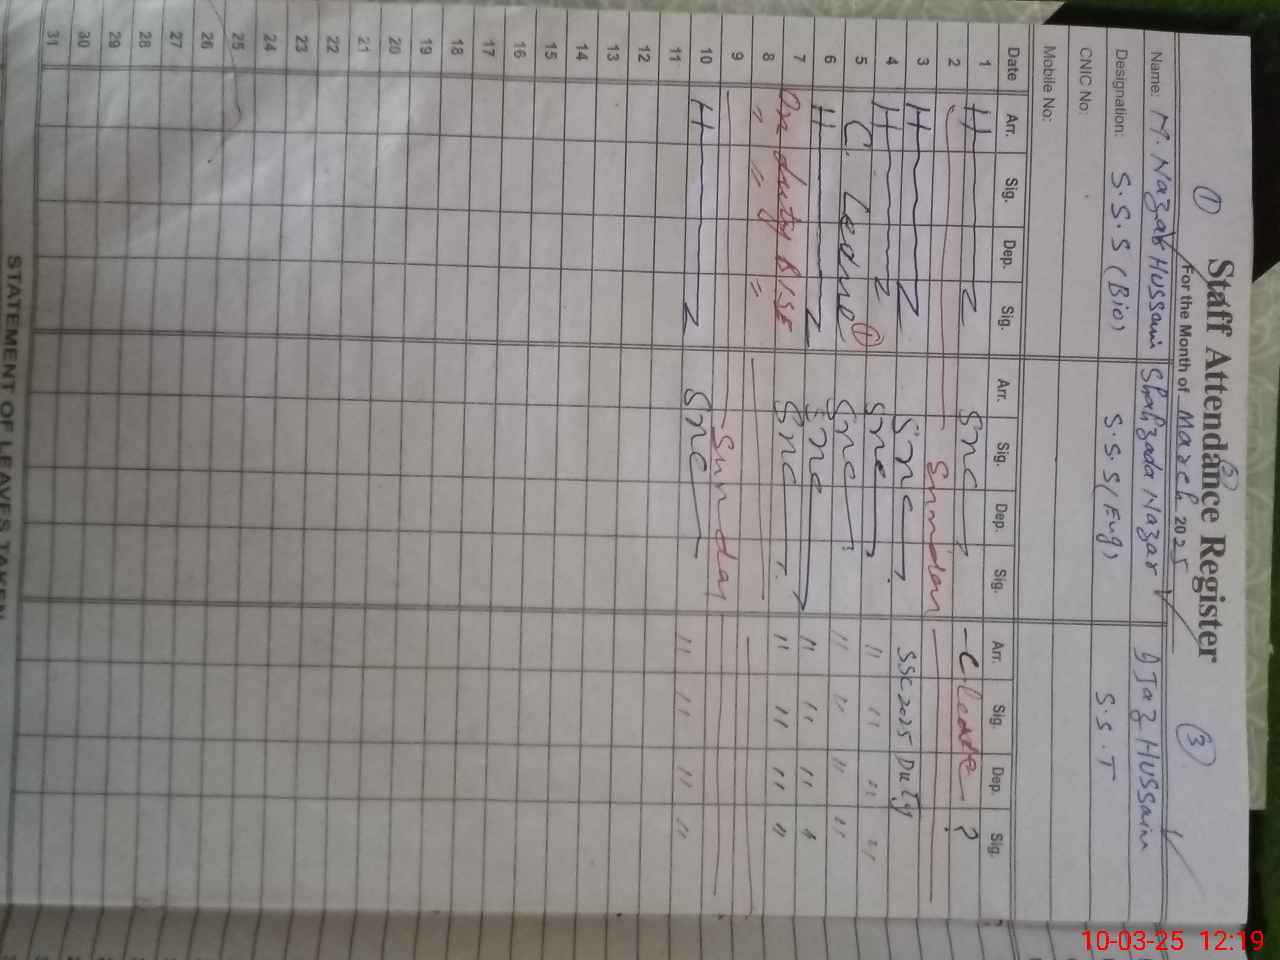 ① ② ③
Staff Attendance Register
For the Month of March 2025
Name: M. Nazar Hussain Shahzada Nazar Ijaz Hussain
Designation: S.S.S (Bio) S.S.S (Eng) S.S.T
CNIC No:
Mobile No:
Date Arr. Sig. Dep. Sig. Arr. Sig. Dep. Sig. Arr. Sig. Dep. Sig.
1 H Z Snc C leave ?
2 Sunday
3 H Z Snc SSC 2025 Duty
4 H Z Snc " " " "
5 C. Leave ① Snc " " " "
6 H Z Snc " " " "
7 On duty BISE Snc " " " "
8 " " "
9 Sunday
10 H Z Snc " " " "
11
12
13
14
15
16
17
18
19
20
21
22
23
24
25
26
27
28
29
30
31
STATEMENT OF LEAVES TAKEN
10-03-25 12:19